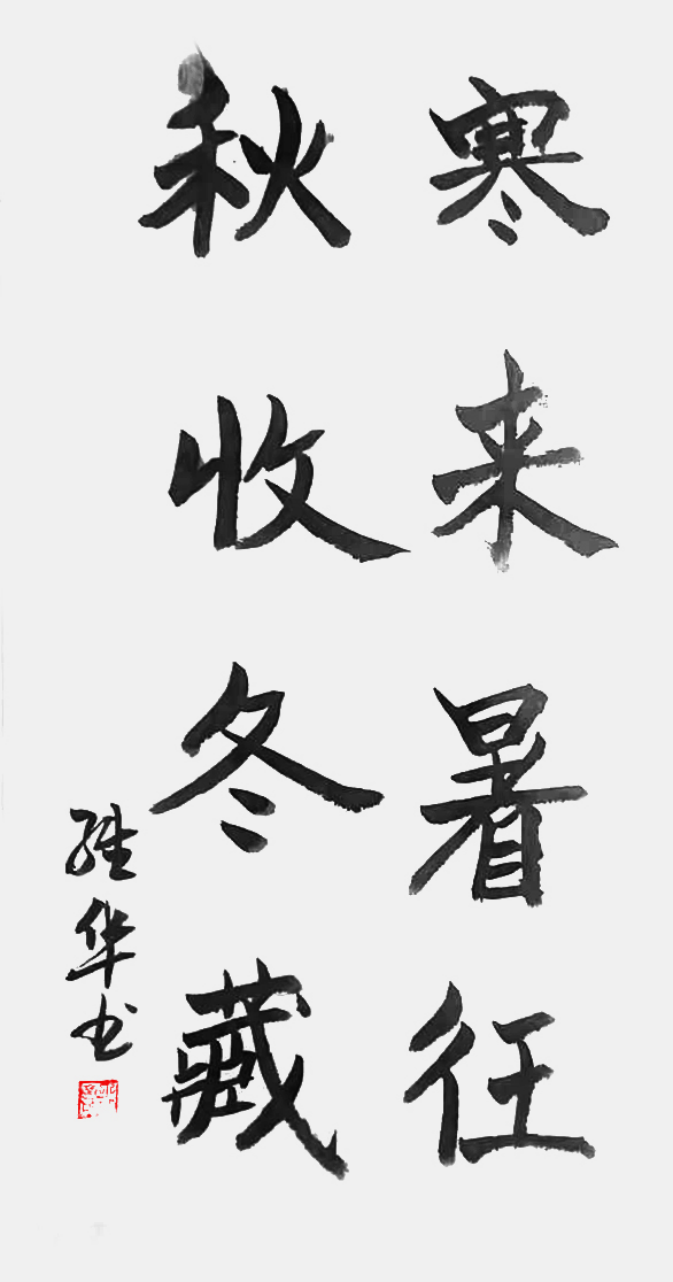 寒来暑往
秋收冬藏
维华书